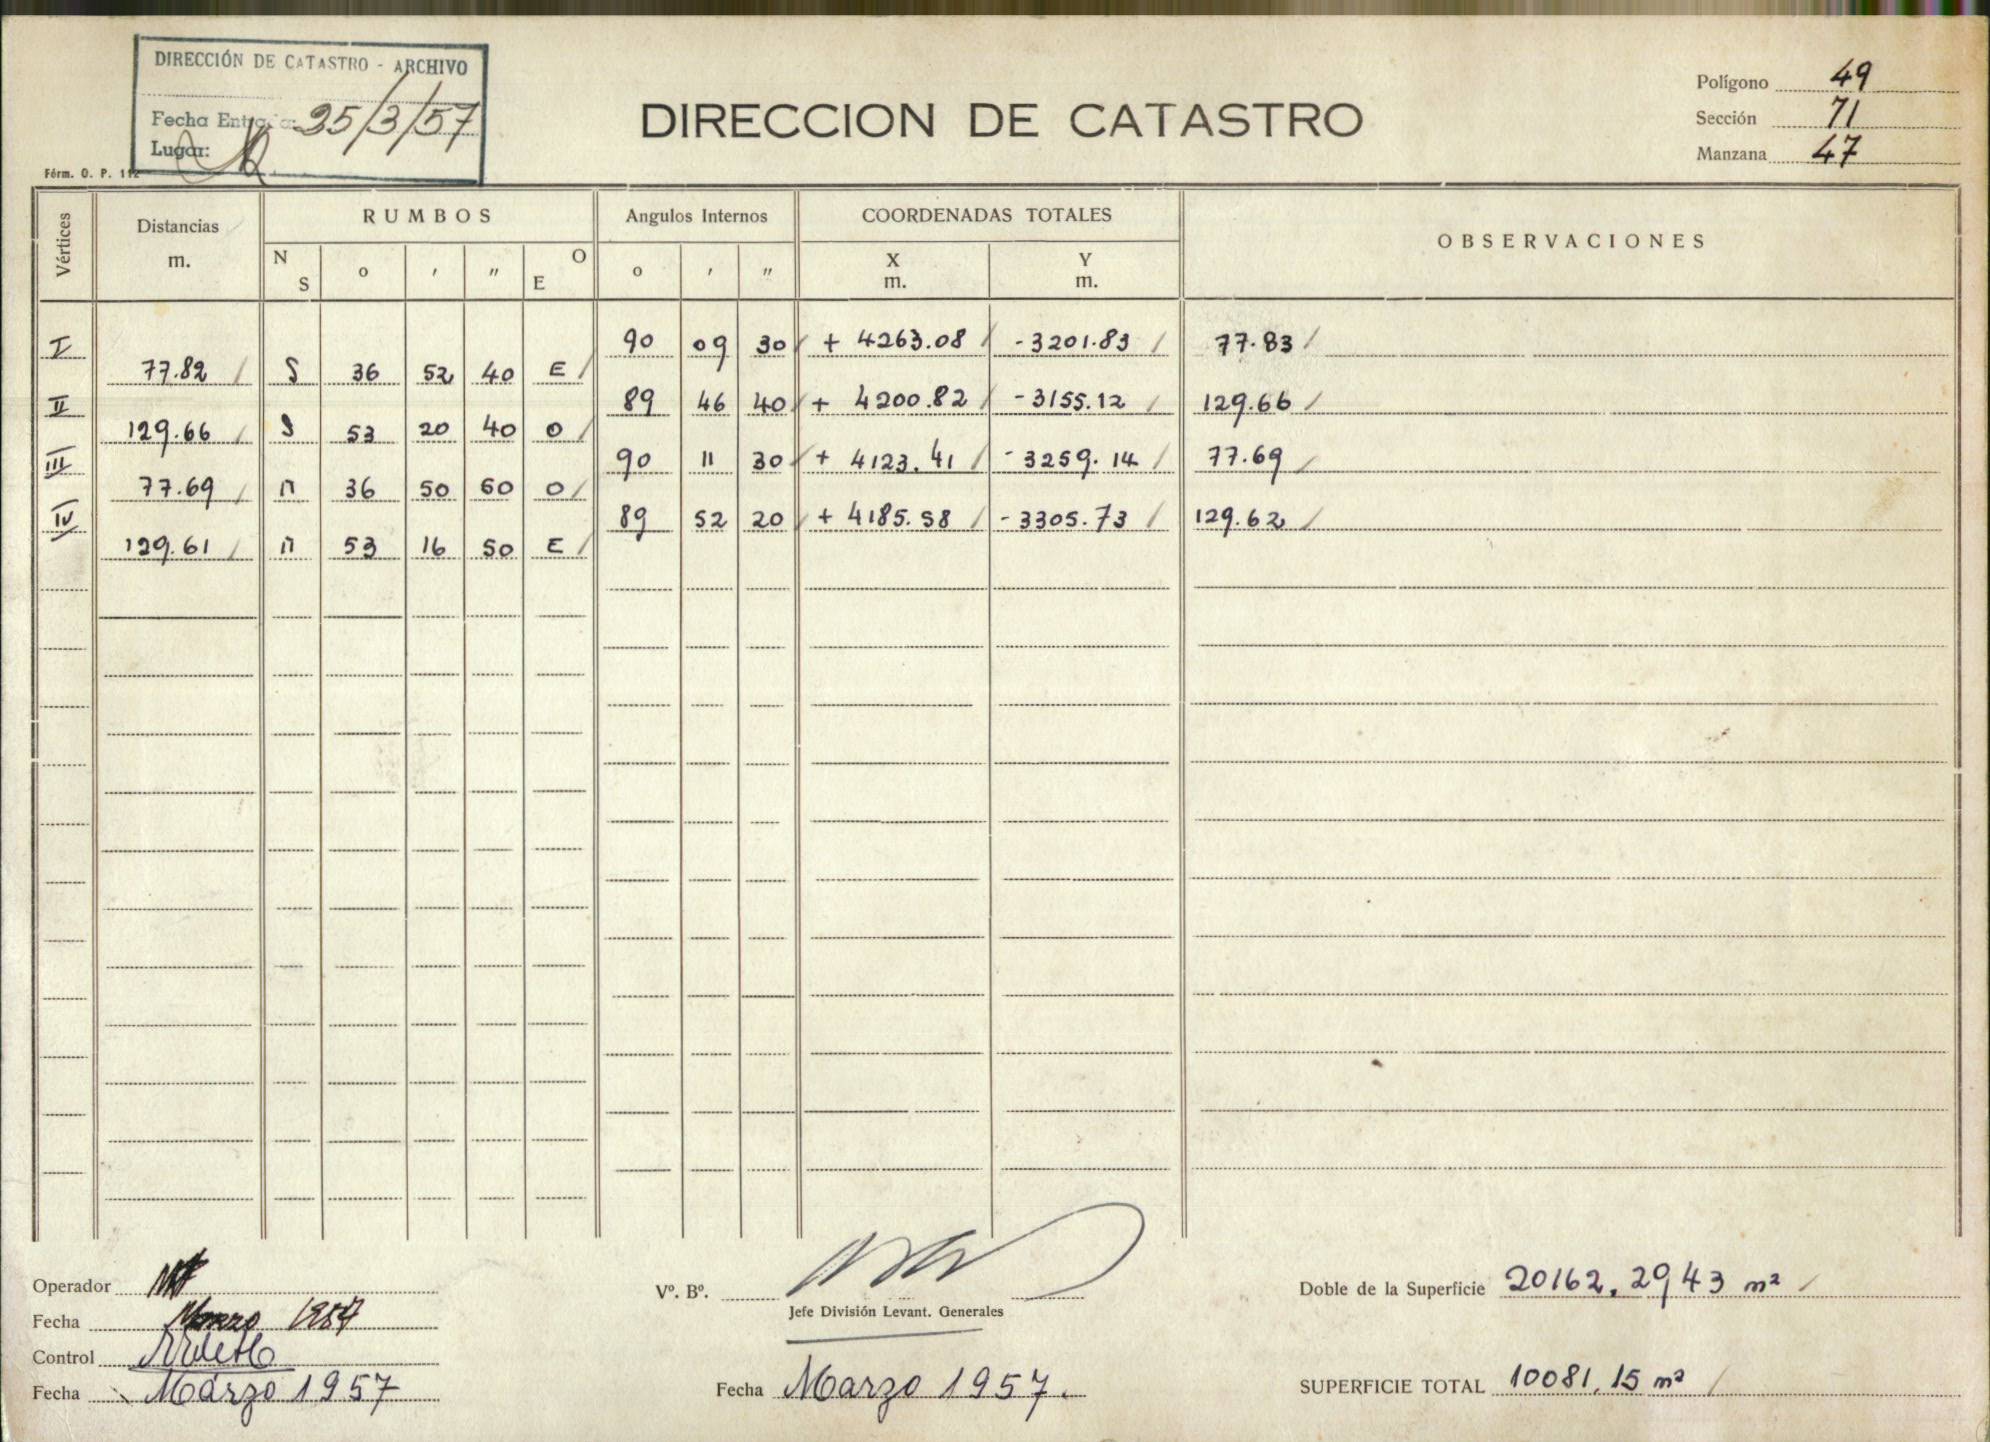 DIRECCIÓN DE CATASTRO - ARCHIVO
Fecha Entrada: 25/3/57
Lugar:
Fórm. O. P. 112
DIRECCION DE CATASTRO
Polígono 49
Sección 71
Manzana 47
Vértices Distancias m. RUMBOS N S o ' " O E Angulos Internos o ' " COORDENADAS TOTALES X m. Y m. OBSERVACIONES
I 90 09 30 + 4263.08 - 3201.83 77.83
77.82 S 36 52 40 E
II 89 46 40 + 4200.82 - 3155.12 129.66
129.66 S 53 20 40 O
III 90 11 30 + 4123.41 - 3259.14 77.69
77.69 N 36 50 60 O
IV 89 52 20 + 4185.58 - 3305.73 129.62
129.61 N 53 16 50 E
Operador
Fecha Marzo 1957
Control
Fecha Marzo 1957
Vº. Bº.
Jefe División Levant. Generales
Fecha Marzo 1957.
Doble de la Superficie 20162,2943 m²
SUPERFICIE TOTAL 10081,15 m²